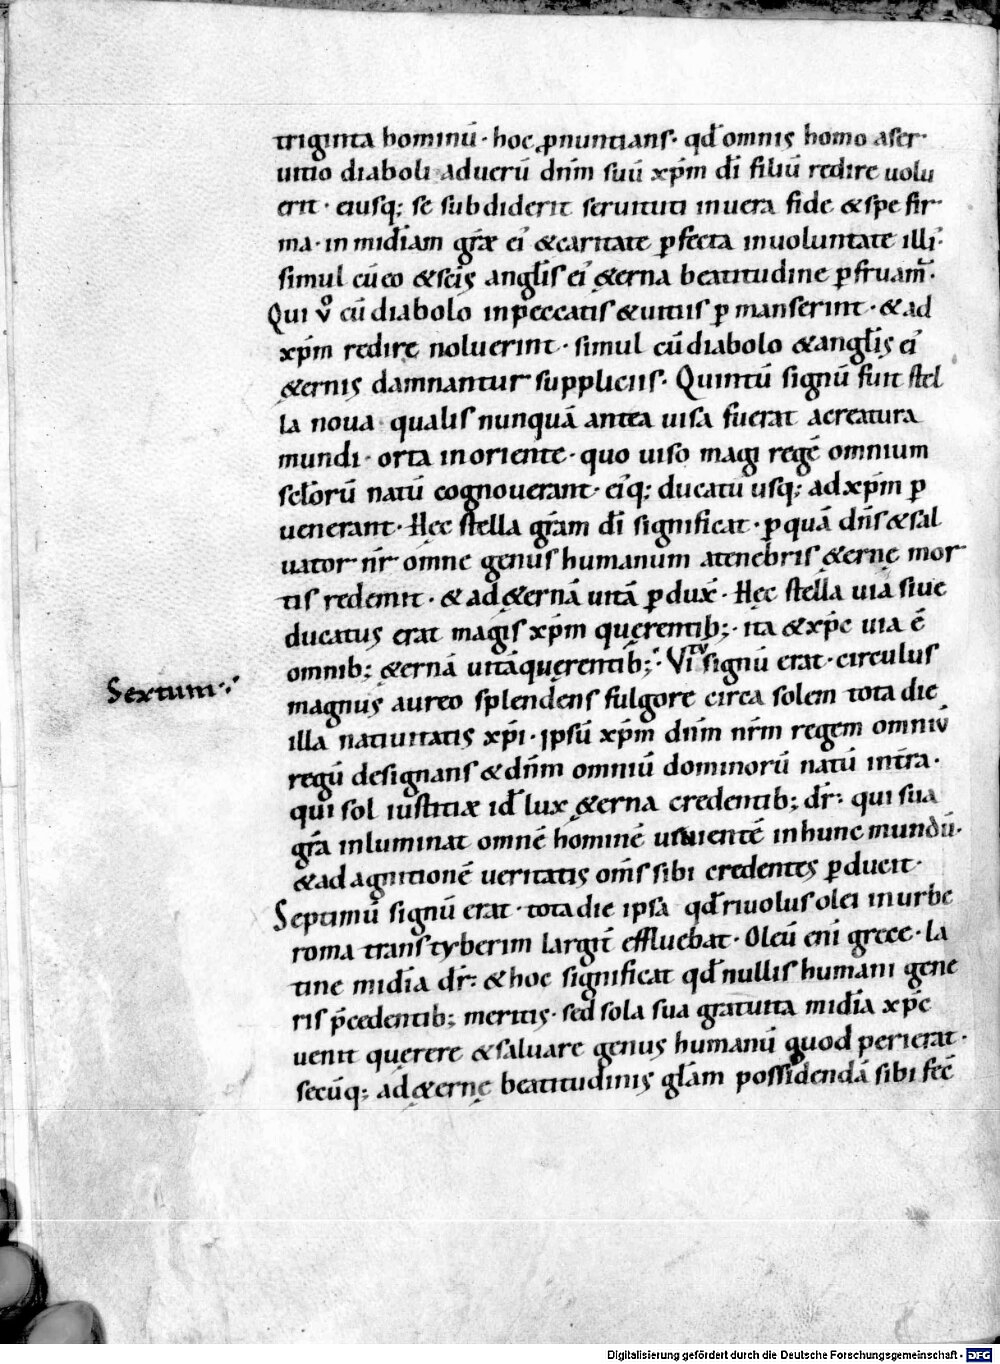 triginta hominū · hoc ꝓnuntians · qđ omnis homo aser
uitio diaboli aduerū dn̄m suū xp̄m dī filiū redire uolu
erit · eiusq; se subdiderit seruituti inuera fide & spe fir
ma · in mi͞diam gr͞ae eī & caritate ꝑfecta inuoluntate illī ·
simul cū eo & sc͞is angl̄is eī &erna beatitudine ꝑfruam̄ ·
Qui v̊ cū diabolo inpeccatis & uitiis ꝑmanserint · & ad
xp̄m redire noluerint · simul cū diabolo & angl̄is eī
&ernis damnantur suppliciis · Quintū signū fuit stel
la noua · qualis nunquā antea uisa fuerat acreatura
mundi · orta inoriente · quo uiso magi regē omnium
sc̄lorū natū cognouerant · eīq; ducatū usq; adxp̄m ꝑ
uenerant · Hęc stella gr̄am dī significat · ꝑquā dn̄s & sal
uator nr̄ omne genus humanum atenebris &ernę mor
tis redemit · & ad &ernā uitā ꝑdux̄ · Hęc stella uia siue
ducatus erat magis xp̄m querentib; · ita & xp̄c uia ē
omnib; &ernā uitā querentib; · VI tū signū erat · circulus
Sextum ·
magnus aureo splendens fulgore circa solem tota die
illa natiuitatis xp̄i · ipsū xp̄m dn̄m nr̄m regem omniū
regū designans & dn̄m omniū dominorū natū intr̄a ·
qui sol iustitiæ id̄ lux &erna credentib; dr̄ · qui sua
gr̄a inluminat omnē hominē uenientē inhunc mundū ·
& ad agnitionē ueritatis om̄s sibi credentes ꝑducit ·
Septimū signū erat · tota die ipsa qđ riuolus olei inurbe
roma trans tyberim largit̄ effluebat · Oleū eni grece · la
tine mi͞dia dr̄ · & hoc significat qđ nullis humani gene
ris p̄cedentib; meritis · sed sola sua gratuita mi͞dia xp̄c
uenit querere & saluare genus humanū quod perierat ·
secūq; ad &ernę beatitudinis gl̄am possidendā sibi fec̄
Digitalisierung gefördert durch die Deutsche Forschungsgemeinschaft - DFG